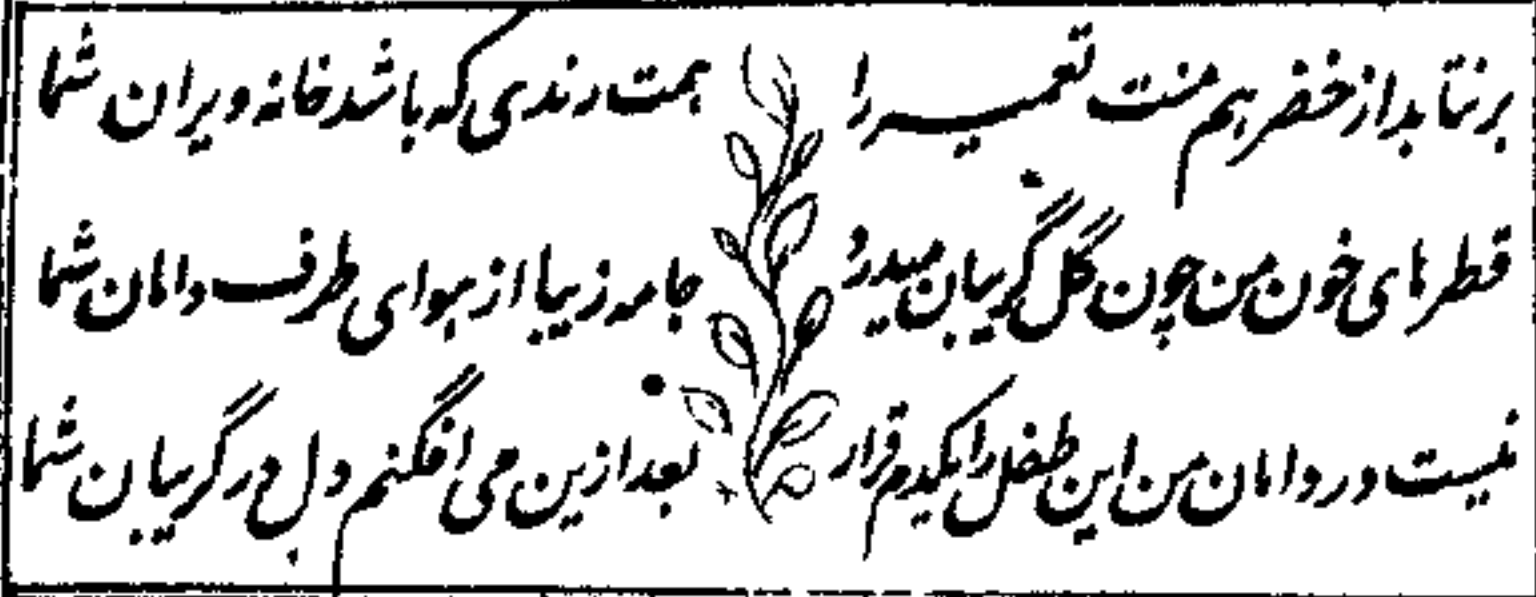 بر نتابد از خضر هم منت تعمیر را همت رندی که باشد خانه ویران شما
قطرهای خون من چون گل گریبان میدرد جامه زیبا از هوای طرف دامان شما
نیست در دامان من این طفل را یکدم قرار بعد ازین می افگنم دل در گریبان شما